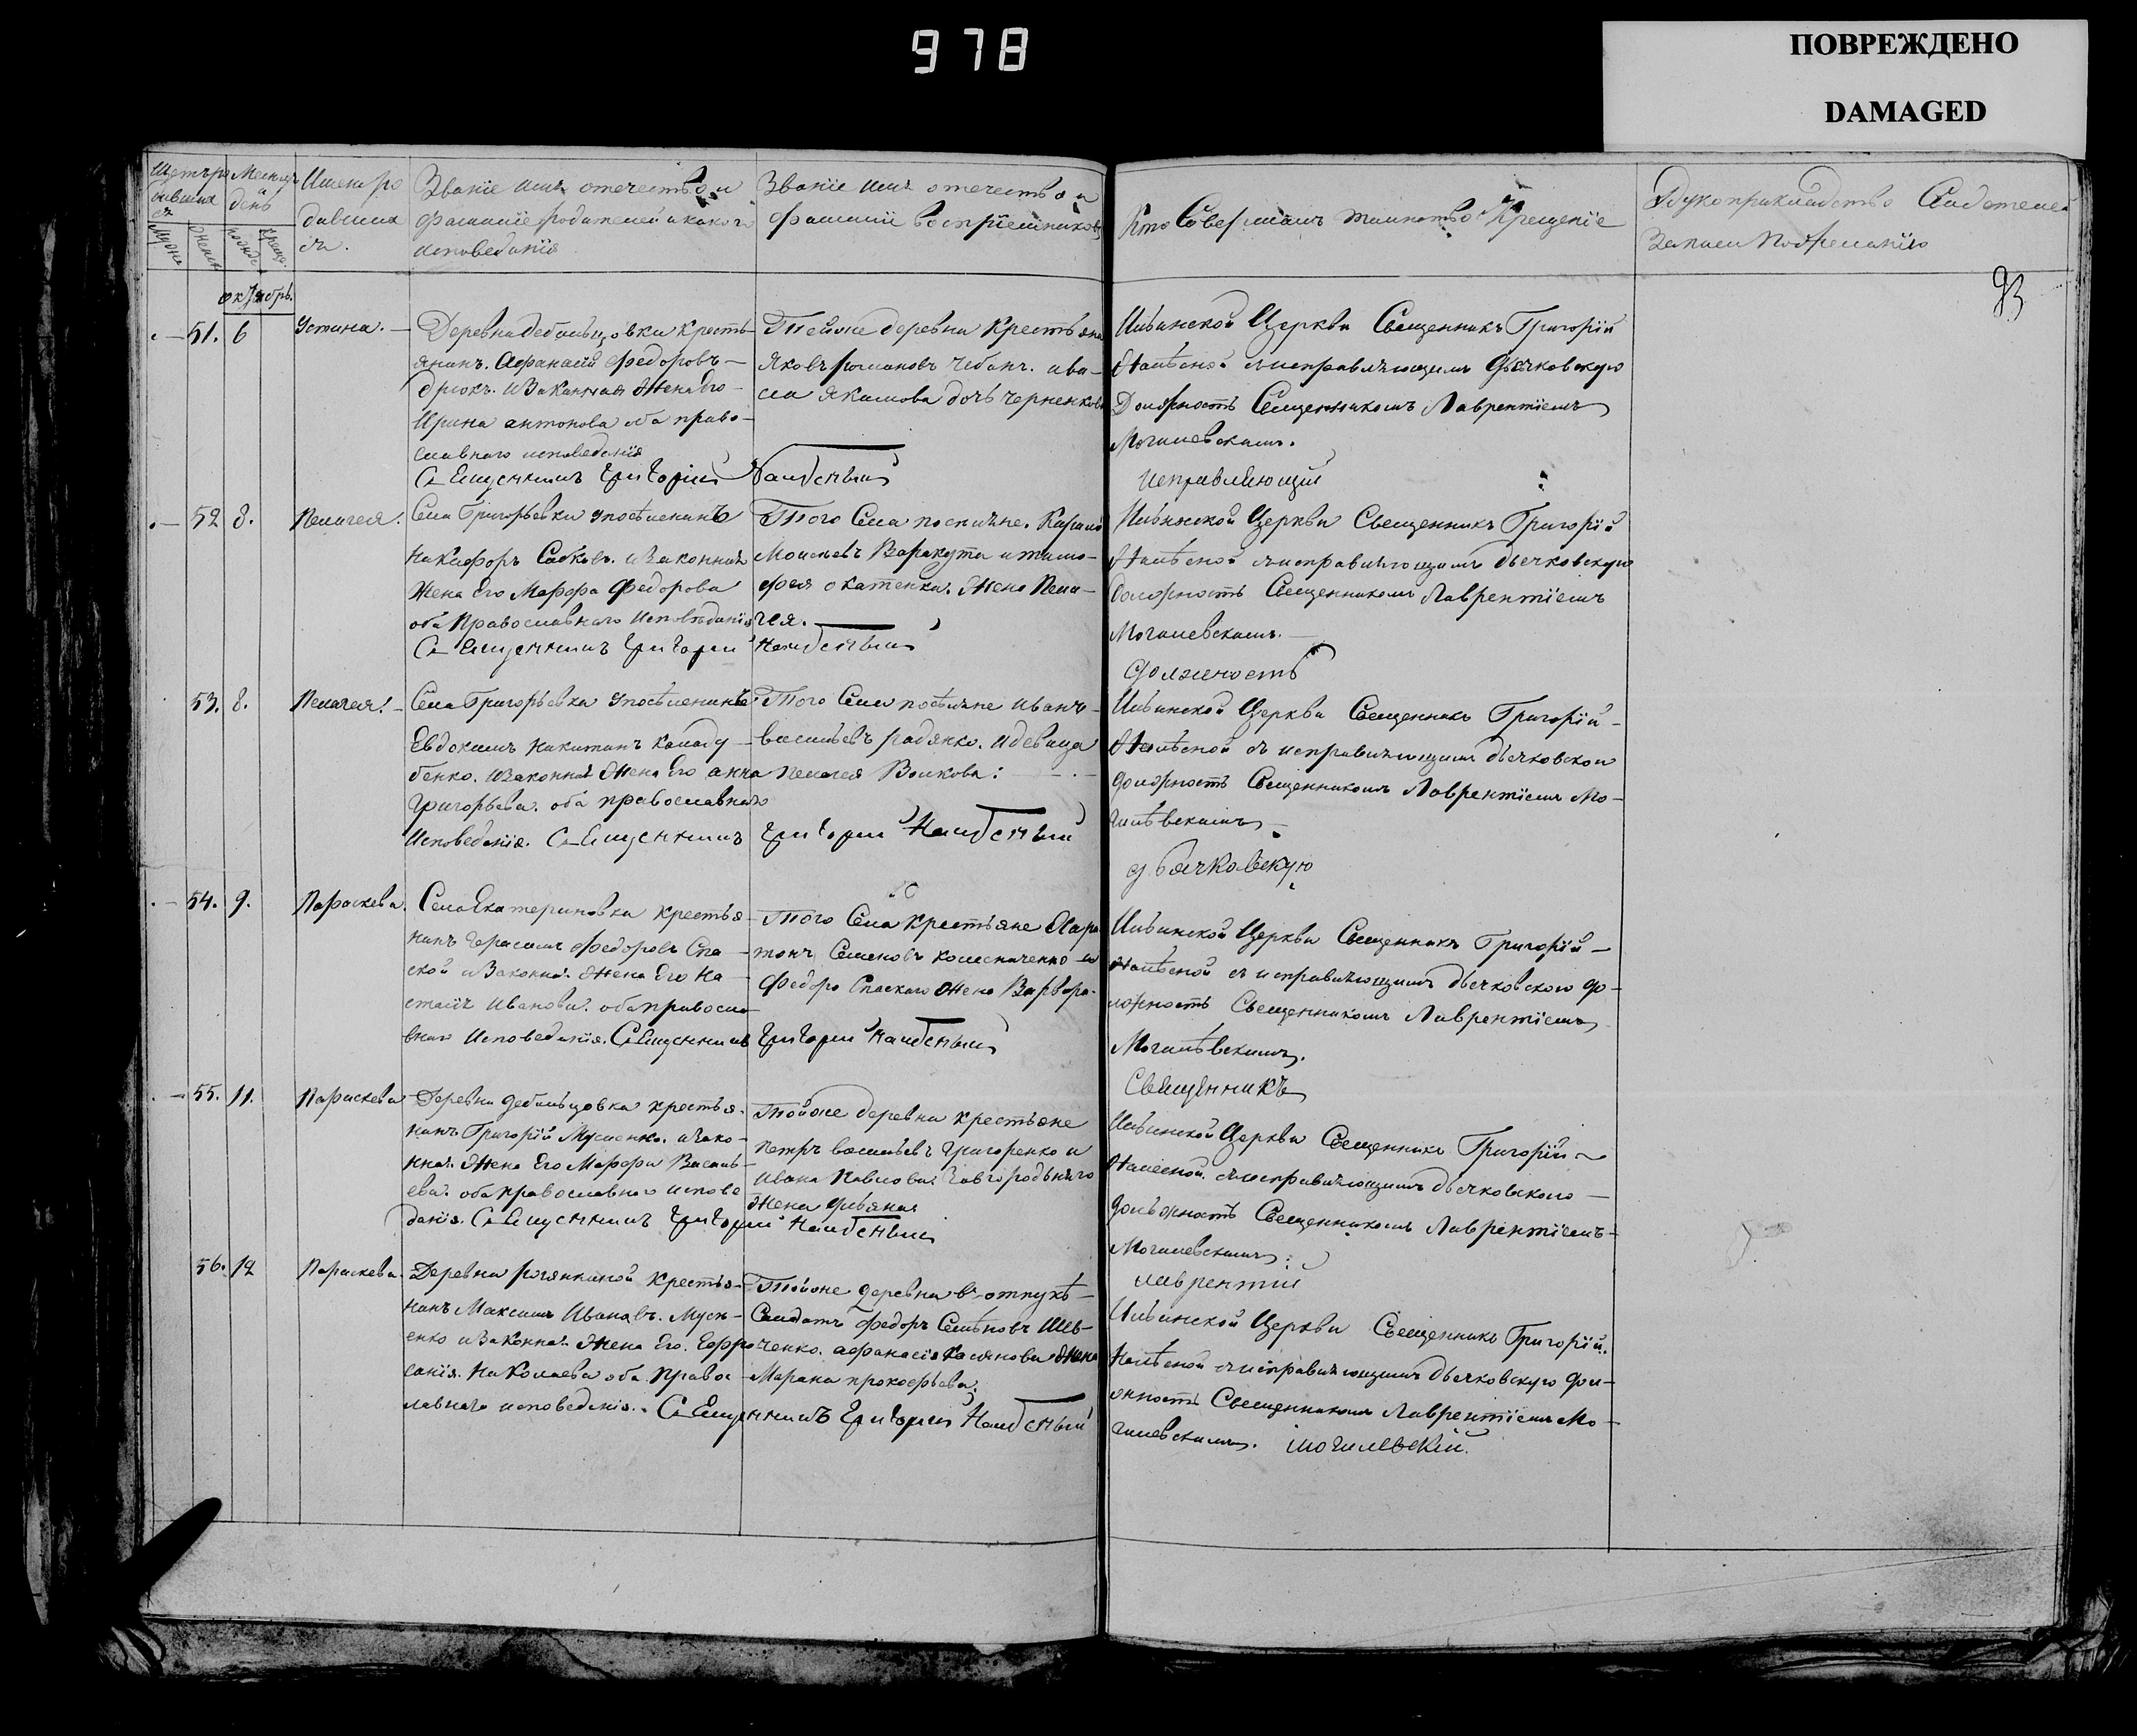 978
ПОВРЕЖДЕНО
DAMAGED
Щетъ ро Месяцъ Имена ро Званїе имя отечество и Званїе имя отечество и
дившихся день дившихся фамилїе родителей и какого фамилїи воспрїемниковъ
ся. исповеданїя
Кто совершалъ таинство Крещенїе
Рукоприкладство
записи по желанїю
93
октябрь.
51. 6 Устина.
Деревни Дебальцовки кресть-
янинъ. Афанасїй Федоровъ
и законная жена его
Ирина антонова оба право-
славнаго исповеданїя
Священникъ Григорїй
Тойже деревни крестьяне
Яковъ Романовъ Чебанъ.
Якимова дочь Черненкова
Ильинской Церкви Священникъ Григорїй
съ исправляющимъ дьячковскую
Должность Священникомъ Лаврентїемъ
Могилевскимъ.
исправляющїй
52 8. Пелагея.
Села Григорьевки
Никифоръ и законная
жена его Марфа Федорова
оба Православнаго Исповѣданїя
Священникъ Григорїй
Того Села поселяне.
Моисеевъ Варакута и тимо-
фея жена Пела-
гея.
Ильинской Церкви Священникъ Григорїй
съ исправляющимъ дьячковскую
должность Священникомъ Лаврентїемъ
Могилевскимъ.
должность
53. 8. Пелагея.
Села Григорьевки
Евдокимъ Никитинъ
бенко. и законная жена его анна
Григорьева. оба православнаго
Исповеданїя. Священникъ Григорїй
Того Села поселяне иванъ
васильевъ радянко. и девица
пелагея Волкова:
Ильинской Церкви Священникъ Григорїй
съ исправляющимъ дьячковскою
должность Священникомъ Лаврентїемъ Мо-
гилѣвскимъ
дьячковскую
54. 9. Параскева.
Села Екатериновка крестья-
нинъ Герасимъ Федоровъ Спа-
ской и законная жена его На-
Иванова. оба правосла-
внаго Исповеданїя. Священникъ Григорїй
Того Села крестьяне Хари-
тонъ Семеновъ Колесниченко и
Федора Спаскаго жена Варвара.
Ильинской Церкви Священникъ Григорїй
съ исправляющимъ дьячковскою до-
лжность Священникомъ Лаврентїемъ
Могилѣвскимъ.
Священникъ
55. 11. Параскева
Деревни Дебальцовка крестья-
нинъ Григорїй Мусиенко. и зако-
нная жена его Марфа Василь-
ева. оба православнаго испове
данїя. Священникъ Григорїй
Тойже деревни крестьяне
Петръ васильевъ Григоренко и
Ивана Павлова Завгороднѣго
жена
Ильинской Церкви Священникъ Григорїй
съ исправляющимъ дьячковскою
должность Священникомъ Лаврентїемъ
Могилевскимъ.
лаврентїй
56. 12 Параскева.
Деревни крестья-
нинъ Максимъ Ивановъ. Муси-
енко и законная жена его. Ефро
синїя. Николаева оба Правос
лавнаго исповеданїя. Священникъ Григорїй
Тойже деревни в отпуке
Солдатъ Федоръ Семѣновъ Шев-
ченко. афанасїя Касянова жена
Марина прокофьева.
Ильинской Церкви Священникъ Григорїй
съ исправляющимъ дьячковскую дол-
жность Священникомъ Лаврентїемъ Мо-
гилевскимъ. могилевскїй.